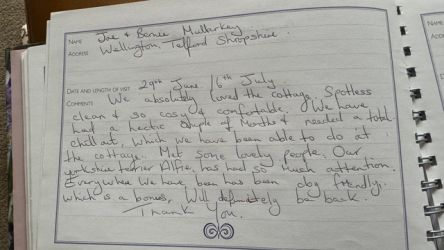 NAME Joe & Bernie Mullarkey
ADDRESS Wellington, Telford Shropshire.
DATE AND LENGTH OF VISIT 29th June 16th July.
COMMENTS We absolutely loved the cottage. Spotless
clean & so cosy & comfortable. We have
had a hectic couple of months & needed a total
chill out, which we have been able to do at
the cottage. Met some lovely people. Our
yorkshire terrier Alfie, has had so much attention.
Everywhere we have been has been dog friendly.
which is a bonus, Will definitely be back.
Thank You.